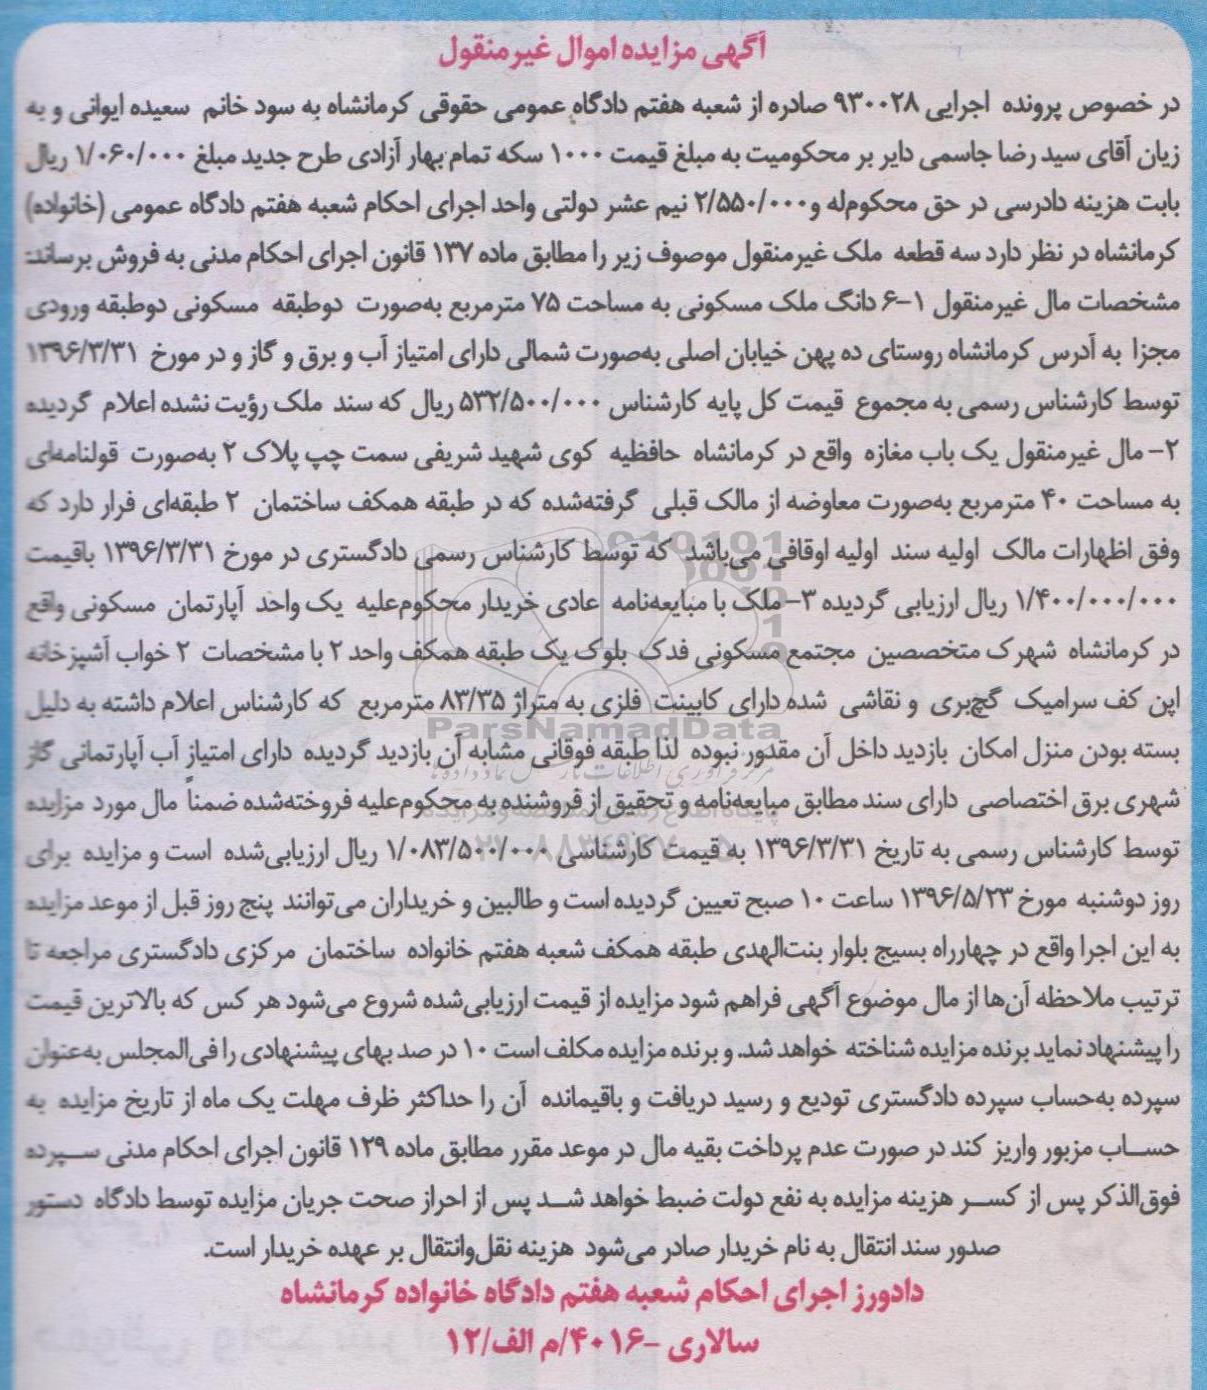 آگهی مزایده اموال غیرمنقول
در خصوص پرونده اجرایی ۹۳۰۰۲۸ صادره از شعبه هفتم دادگاه عمومی حقوقی کرمانشاه به سود خانم سعیده ایوانی و به
زیان آقای سید رضا جاسمی دایر بر محکومیت به مبلغ قیمت ۱۰۰۰ سکه تمام بهار آزادی طرح جدید مبلغ ۱/۰۶۰/۰۰۰ ریال
بابت هزینه دادرسی در حق محکوم‌له و۲/۵۵۰/۰۰۰ نیم عشر دولتی واحد اجرای احکام شعبه هفتم دادگاه عمومی (خانواده)
کرمانشاه در نظر دارد سه قطعه ملک غیرمنقول موصوف زیر را مطابق ماده ۱۳۷ قانون اجرای احکام مدنی به فروش برساند:
مشخصات مال غیرمنقول ۱-۶ دانگ ملک مسکونی به مساحت ۷۵ مترمربع به‌صورت دوطبقه مسکونی دوطبقه ورودی
مجزا به آدرس کرمانشاه روستای ده پهن خیابان اصلی به‌صورت شمالی دارای امتیاز آب و برق و گاز و در مورخ ۱۳۹۶/۳/۳۱
توسط کارشناس رسمی به مجموع قیمت کل پایه کارشناس ۵۳۲/۵۰۰/۰۰۰ ریال که سند ملک رؤیت نشده اعلام گردیده
۲- مال غیرمنقول یک باب مغازه واقع در کرمانشاه حافظیه کوی شهید شریفی سمت چپ پلاک ۲ به‌صورت قولنامه‌ای
به مساحت ۴۰ مترمربع به‌صورت معاوضه از مالک قبلی گرفته‌شده که در طبقه همکف ساختمان ۲ طبقه‌ای قرار دارد که
وفق اظهارات مالک اولیه سند اولیه اوقافی می‌باشد که توسط کارشناس رسمی دادگستری در مورخ ۱۳۹۶/۳/۳۱ باقیمت
۱/۴۰۰/۰۰۰/۰۰۰ ریال ارزیابی گردیده ۳- ملک با مبایعه‌نامه عادی خریدار محکوم‌علیه یک واحد آپارتمان مسکونی واقع
در کرمانشاه شهرک متخصصین مجتمع مسکونی فدک بلوک یک طبقه همکف واحد ۲ با مشخصات ۲ خواب آشپزخانه
اپن کف سرامیک گچ‌بری و نقاشی شده دارای کابینت فلزی به متراژ ۸۳/۳۵ مترمربع که کارشناس اعلام داشته به دلیل
بسته بودن منزل امکان بازدید داخل آن مقدور نبوده لذا طبقه فوقانی مشابه آن بازدید گردیده دارای امتیاز آب آپارتمانی گاز
شهری برق اختصاصی دارای سند مطابق مبایعه‌نامه و تحقیق از فروشنده به محکوم‌علیه فروخته‌شده ضمناً مال مورد مزایده
توسط کارشناس رسمی به تاریخ ۱۳۹۶/۳/۳۱ به قیمت کارشناسی ۱/۰۸۳/۵۰۰/۰۰۰ ریال ارزیابی‌شده است و مزایده برای
روز دوشنبه مورخ ۱۳۹۶/۵/۲۳ ساعت ۱۰ صبح تعیین گردیده است و طالبین و خریداران می‌توانند پنج روز قبل از موعد مزایده
به این اجرا واقع در چهارراه بسیج بلوار بنت‌الهدی طبقه همکف شعبه هفتم خانواده ساختمان مرکزی دادگستری مراجعه تا
ترتیب ملاحظه آن‌ها از مال موضوع آگهی فراهم شود مزایده از قیمت ارزیابی‌شده شروع می‌شود هر کس که بالاترین قیمت
را پیشنهاد نماید برنده مزایده شناخته خواهد شد. و برنده مزایده مکلف است ۱۰ در صد بهای پیشنهادی را فی‌المجلس به‌عنوان
سپرده به‌حساب سپرده دادگستری تودیع و رسید دریافت و باقیمانده آن را حداکثر ظرف مهلت یک ماه از تاریخ مزایده به
حساب مزبور واریز کند در صورت عدم پرداخت بقیه مال در موعد مقرر مطابق ماده ۱۲۹ قانون اجرای احکام مدنی سپرده
فوق‌الذکر پس از کسر هزینه مزایده به نفع دولت ضبط خواهد شد پس از احراز صحت جریان مزایده توسط دادگاه دستور
صدور سند انتقال به نام خریدار صادر می‌شود هزینه نقل‌وانتقال بر عهده خریدار است.
دادورز اجرای احکام شعبه هفتم دادگاه خانواده کرمانشاه
سالاری -۴۰۱۶/م الف/۱۲
ParsNamadData